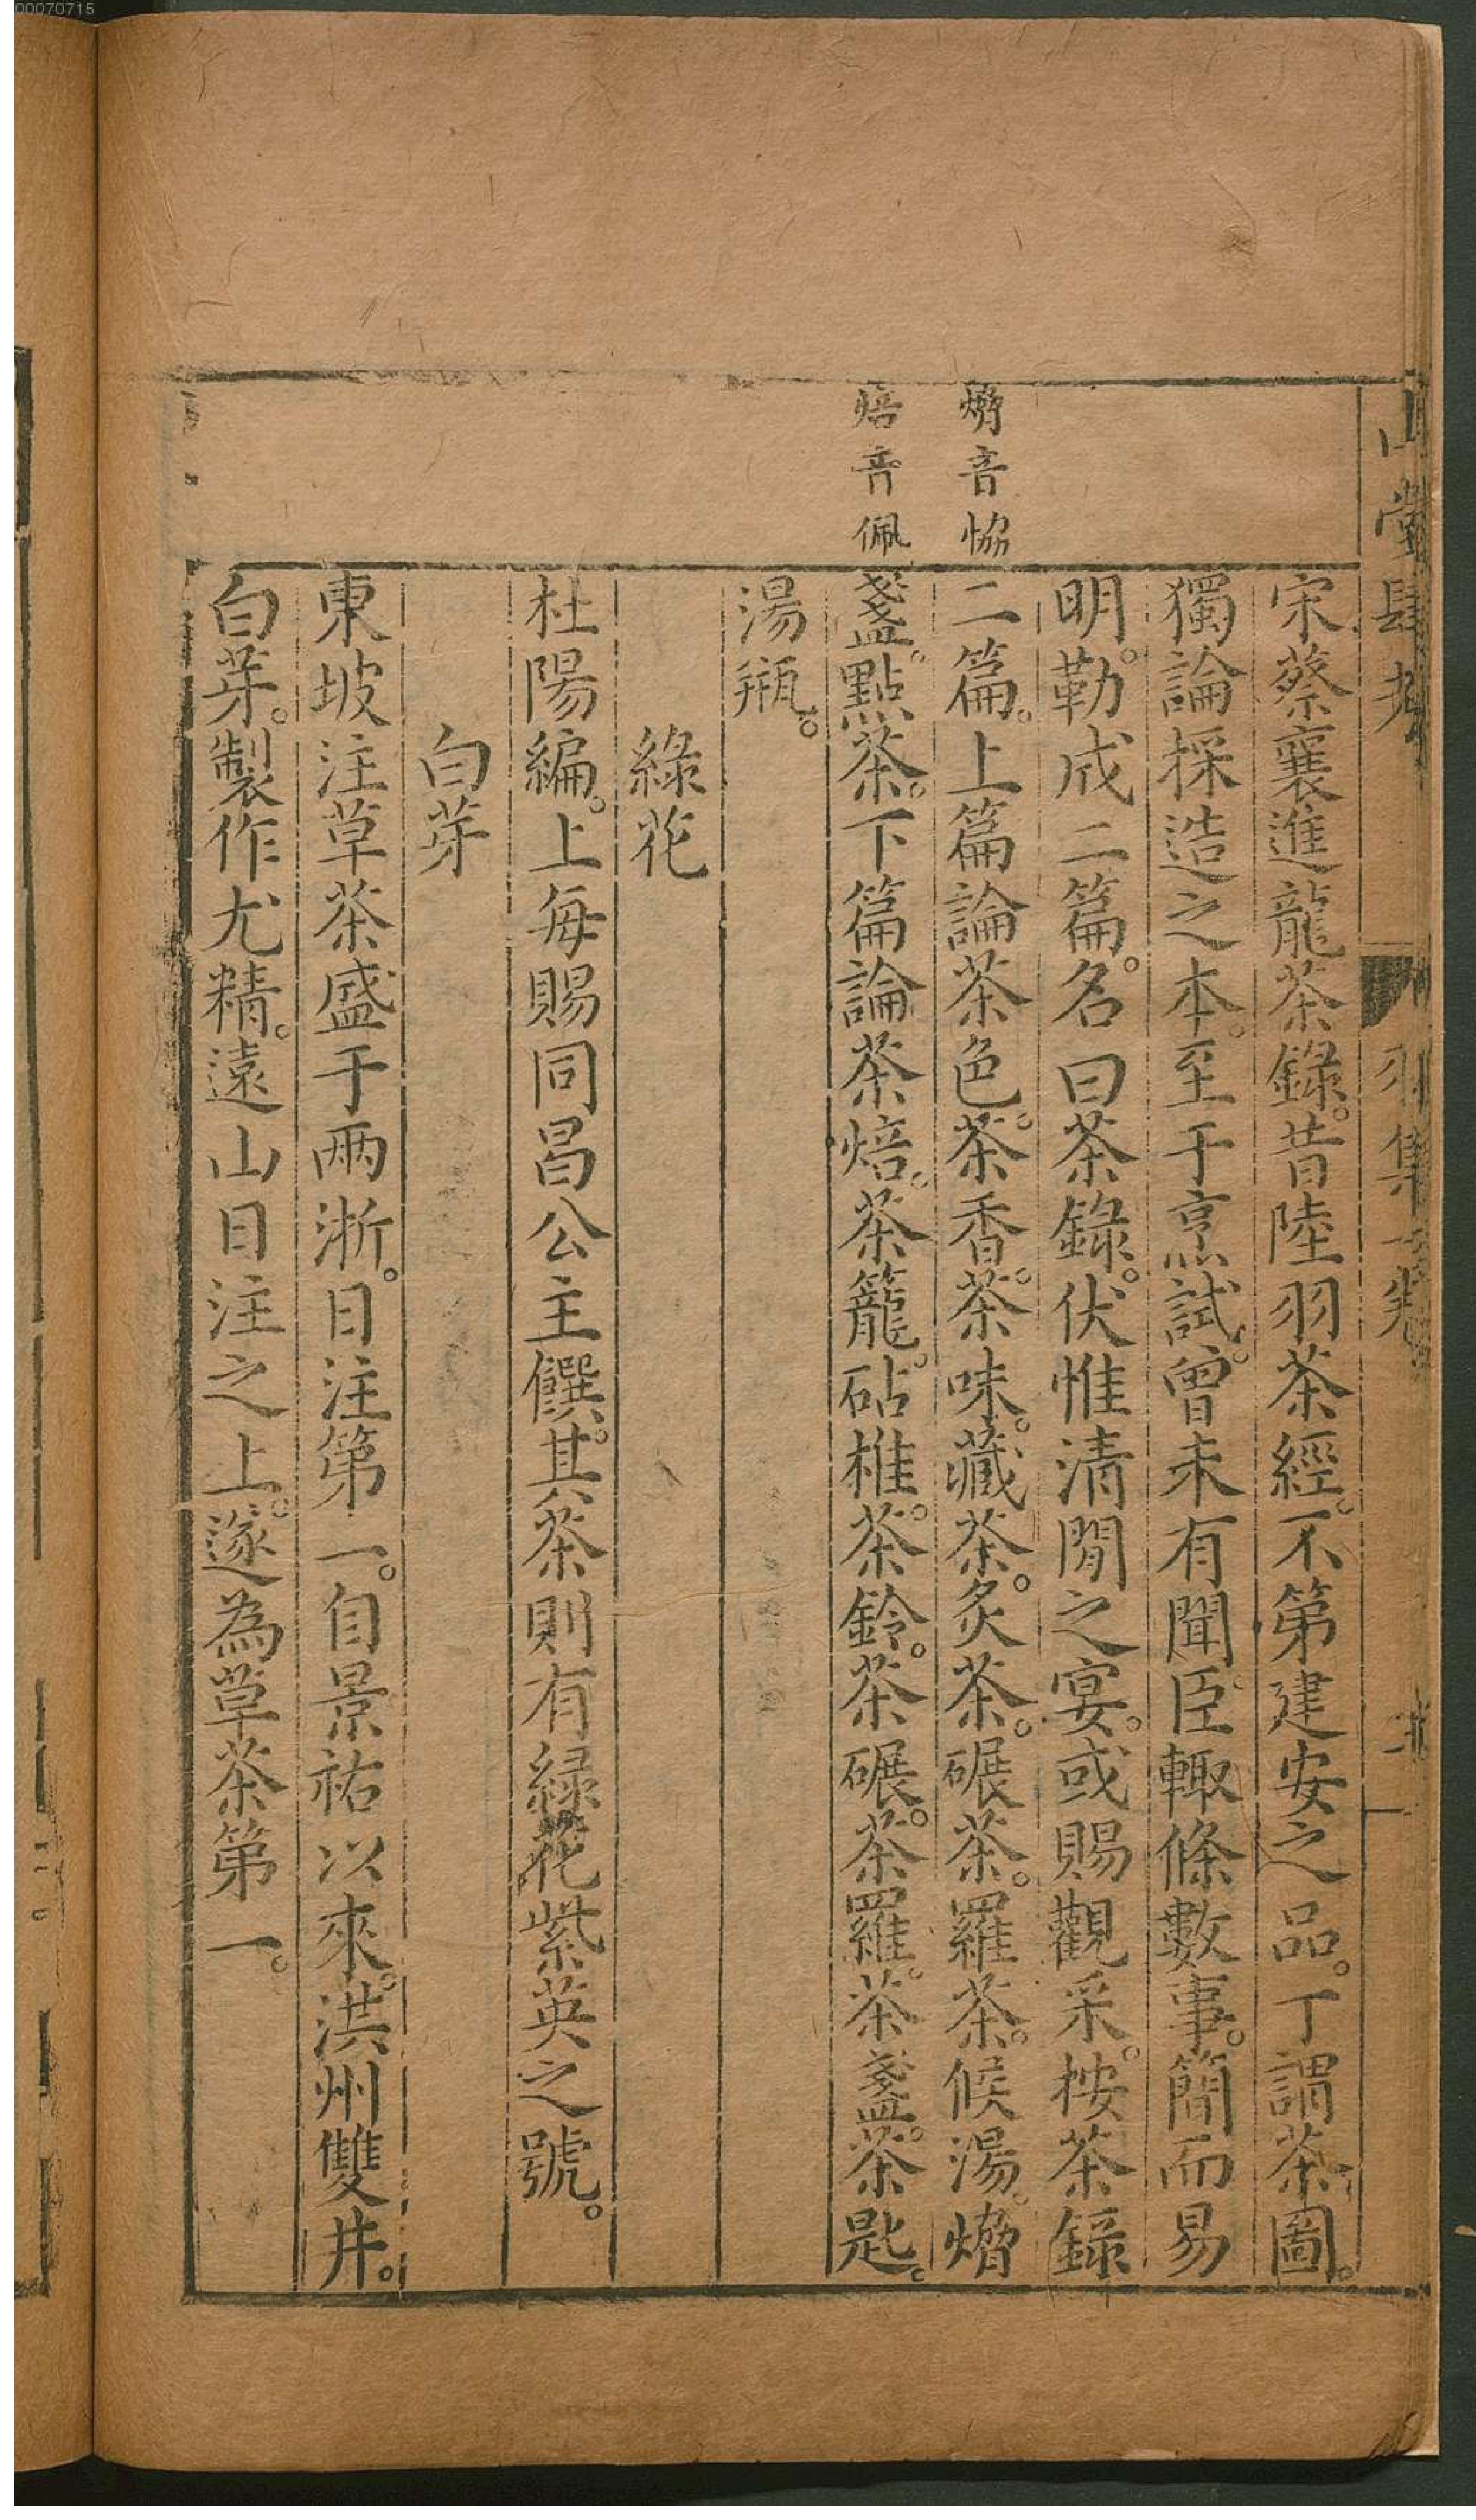 00070715
山堂肆考
羽集
卷
宋蔡襄進龍茶錄。昔陸羽茶經。不第建安之品。丁謂茶圖。
獨論採造之本。至于烹試。曾未有聞。臣輙條數事。簡而易
明。勒成二篇。名曰茶錄。伏惟清閒之宴。或賜觀采。桉茶錄
熁音恊
二篇。上篇論茶色。茶香。茶味。藏茶。炙茶。碾茶。羅茶。候湯。熁
焙音佩
盞。點茶。下篇論茶焙。茶籠。砧椎。茶鈴。茶碾。茶羅。茶盞。茶匙。
湯瓶。
綠花
杜陽編。上每賜同昌公主饌。其茶則有緑花紫英之號。
白芽
東坡注草茶盛于兩浙。日注第一。自景祐以來。洪州雙井。
白芽。製作尤精。遠山日注之上。遂為草茶第一。